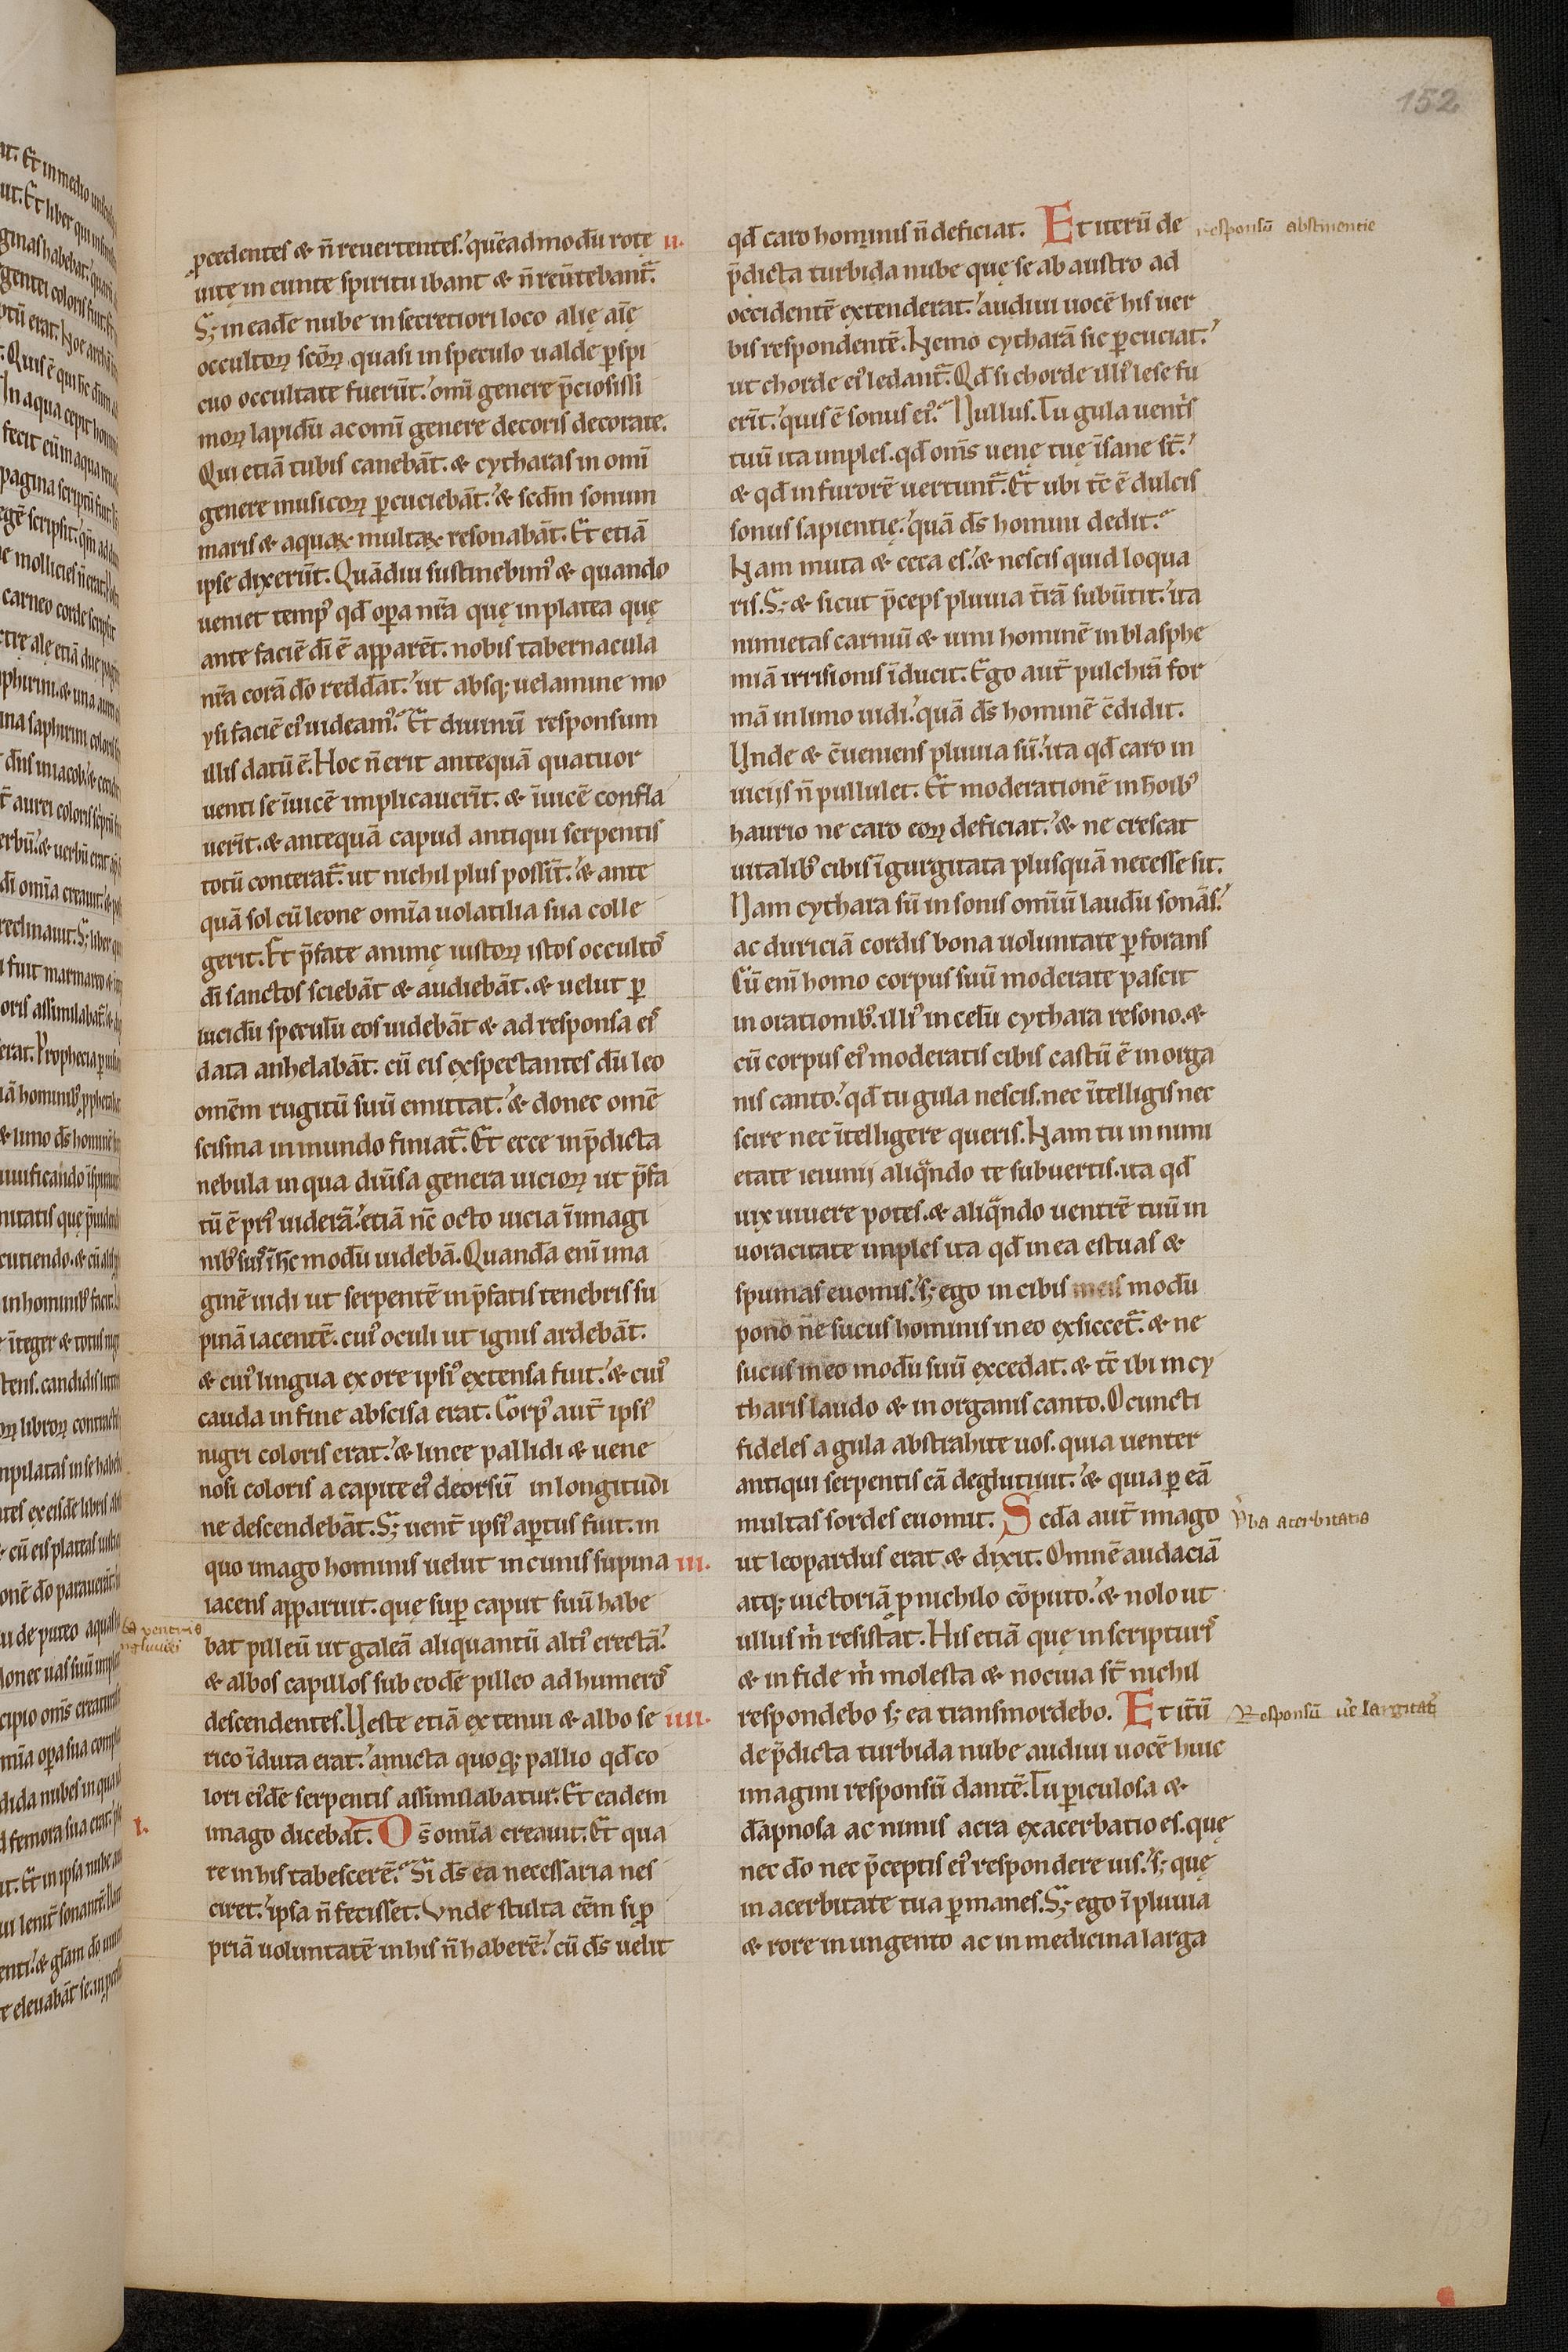 152
ꝓcedentes & n̄ reuertentes.' quēadmodū rotę
uitę in eunte spiritu ibant & n̄ reūtebant᷑.
S; in eadē nube in secretiori loco alię aīę
occultoꝝ scōꝝ quasi in speculo ualde ꝑspi
cuo occultate fuerūt.' omī genere p̄ciosissi
moꝝ lapidū ac omī genere decoris decorate.
Qui etiā tubis canebāt. & cytharas in omī
genere musicoꝝ ꝑcuciebāt.' & scdm̄ sonum
maris & aquaꝝ multaꝝ resonabāt. Et etiā
ipse dixerūt. Quādiu sustinebimꝰ & quando
ueniet tempꝰ qd̄ oꝑa nr̄a quę in platea quę
ante faciē dī ē apparēt. nobis tabernacula
nr̄a corā dō reddat.' ut absq; uelamine mo
ysi faciē eiꝰ uideamꝰ. Et diuinū responsum
illis datū ē. Hoc n̄ erit antequā quatuor
uenti se īuicē implicauerīt. & īuicē confla
uerīt. & antequā capud antiqui serpentis
totū conterat᷑. ut nichil plus possīt.' & ante
quā sol cū leone omīa uolatilia sua colle
gerit. Et p̄fate animę iustoꝝ istos occultoꝰ
dī sanctos sciebāt & audiebāt. & uelut ꝑ
lucidū speculū eos uidebāt & ad responsa eiꝰ
data anhelabāt. cū eis exspectantes dū leo
omēm rugitū suū emittat.' & donec omē
scisma in mundo finiat᷑. Et ecce in p̄dicta
nebula in qua diūsa genera uicioꝝ ut p̄fa
tū ē priꝰ uiderā.' etiā nc̄ octo uicia ī imagi
nibꝰ suiꝰ ī hc̄ modū uidebā. Quandā enī ima
ginē uidi ut serpentē in p̄fatis tenebris su
pinā iacentē. cuiꝰ oculi ut ignis ardebāt.
& cuiꝰ lingua ex ore ipsiꝰ extensa fuit.' & cuiꝰ
cauda in fine abscisa erat. Corpꝰ aut̄ ipsiꝰ
nigri coloris erat.' & linee pallidi & uene
nosi coloris a capite eiꝰ deorsū in longitudī
ne descendebāt. S; uent̄ ipsiꝰ aꝑtus fuit. in
quo imago hominis uelut in cunis supina
iacens apparuit. que suꝑ caput suū habe
bat pilleū ut galeā aliquantū altiꝰ erectā.'
& albos capillos sub eodē pilleo ad humeroꝰ
descendentes. Veste etiā ex tenui & albo se
rico īduta erat.' amicta quoq; pallio qd̄ co
lori eiꝰdē serpentis assimilabatur. Et eadem
imago dicebat. I. Ds̄ omīa creauit. Et qua
re in his tabescerē. Si ds̄ ea necessaria nes
ciret.' ipsa n̄ fecisset. Vnde stulta eēm si ꝓ
priā uoluntatē in his n̄ haberē.' cū ds̄ uelit
qd̄ caro hominis n̄ deficiat. II. Et iterū de
responsū abstinentie
p̄dicta turbida nube quę se ab austro ad
occidentē extenderat.' audiui uocē his uer
bis respondentē. Nemo cytharā sic ꝑcuciat.'
ut chorde eiꝰ ledant᷑. Qd̄ si chorde illiꝰ lese fu
erīt.' quis ē sonus eiꝰ. Nullus. Tu gula uent̄s
tuū ita imples. qd̄ om̄s uenę tuę īsane st̄.'
& qd̄ in furorē uertunt᷑. Et ubi tc̄ ē dulcis
sonus sapientię.' quā ds̄ homini dedit.
Nam muta & ceca es.' & nescis quid loqua
ris. S; & sicut p̄ceps pluuia t̄rā subūtit.' ita
nimietas carniū & uini hominē in blasphe
miā irrisionis īducit. Ego aut̄ pulchrā for
mā in limo uidi.' quā ds̄ hominē c̄didit.
Unde & c̄ueniens pluuia sū.' ita qd̄ caro in
uicijs n̄ pullulet. Et moderationē in hoībꝰ
haurio ne caro eoꝝ deficiat.' & ne crescat
uitalibꝰ cibis īgurgitata plusquā necesse sit.
Nam cythara sū in sonis omīū laudū sonās.'
ac duriciā cordis bona uoluntate ꝑforans
Cū enī homo corpus suū moderate pascit
in orationibꝰ. illiꝰ in celū cythara resono. &
cū corpus eiꝰ moderatis cibis castū ē in orga
nis canto.' qd̄ tu gula nescis. nec ītelligis nec
scire nec ītelligere queris. Nam tu in nimi
etate ieiunij aliqn̄do te subuertis. ita qd̄
uix uiuere potes. & aliqn̄do uentrē tuū in
uoracitate imples ita qd̄ in ea estuas &
spumas euomis.' s; ego in cibis meis modū
pono ne sucus hominis in eo exsiccet᷑. & ne
sucus in eo modū suū excedat. & tc̄ ibi in cy
tharis laudo & in organis canto. O cuncti
fideles a gula abstrahite uos. quia uenter
antiqui serpentis eā deglutiuit.' & quia ꝑ eā
multas sordes euomit. Scd̄a aut̄ imago
v̄ba acerbitatis
III. ut leopardus erat & dixit. Omnē audaciā
atq; uictoriā ꝓ nichilo cōputo.' & nolo ut
ullus m̄ resistat. His etiā quę in scripturiꝰ
& in fide m̄ molesta & nociua st̄ nichil
respondebo s; ea transmordebo. IIII. Et it̄ū
Responsū ūe largitatꝭ
de p̄dicta turbida nube audiui uocē huic
imagini responsū dantē. Tu ꝑiculosa &
dāpnosa ac nimis acra exacerbatio es. quę
nec dō nec p̄ceptis eiꝰ respondere uis.' s; quę
in acerbitate tua ꝑmanes. S; ego ī pluuia
& rore in ungento ac in medicina larga